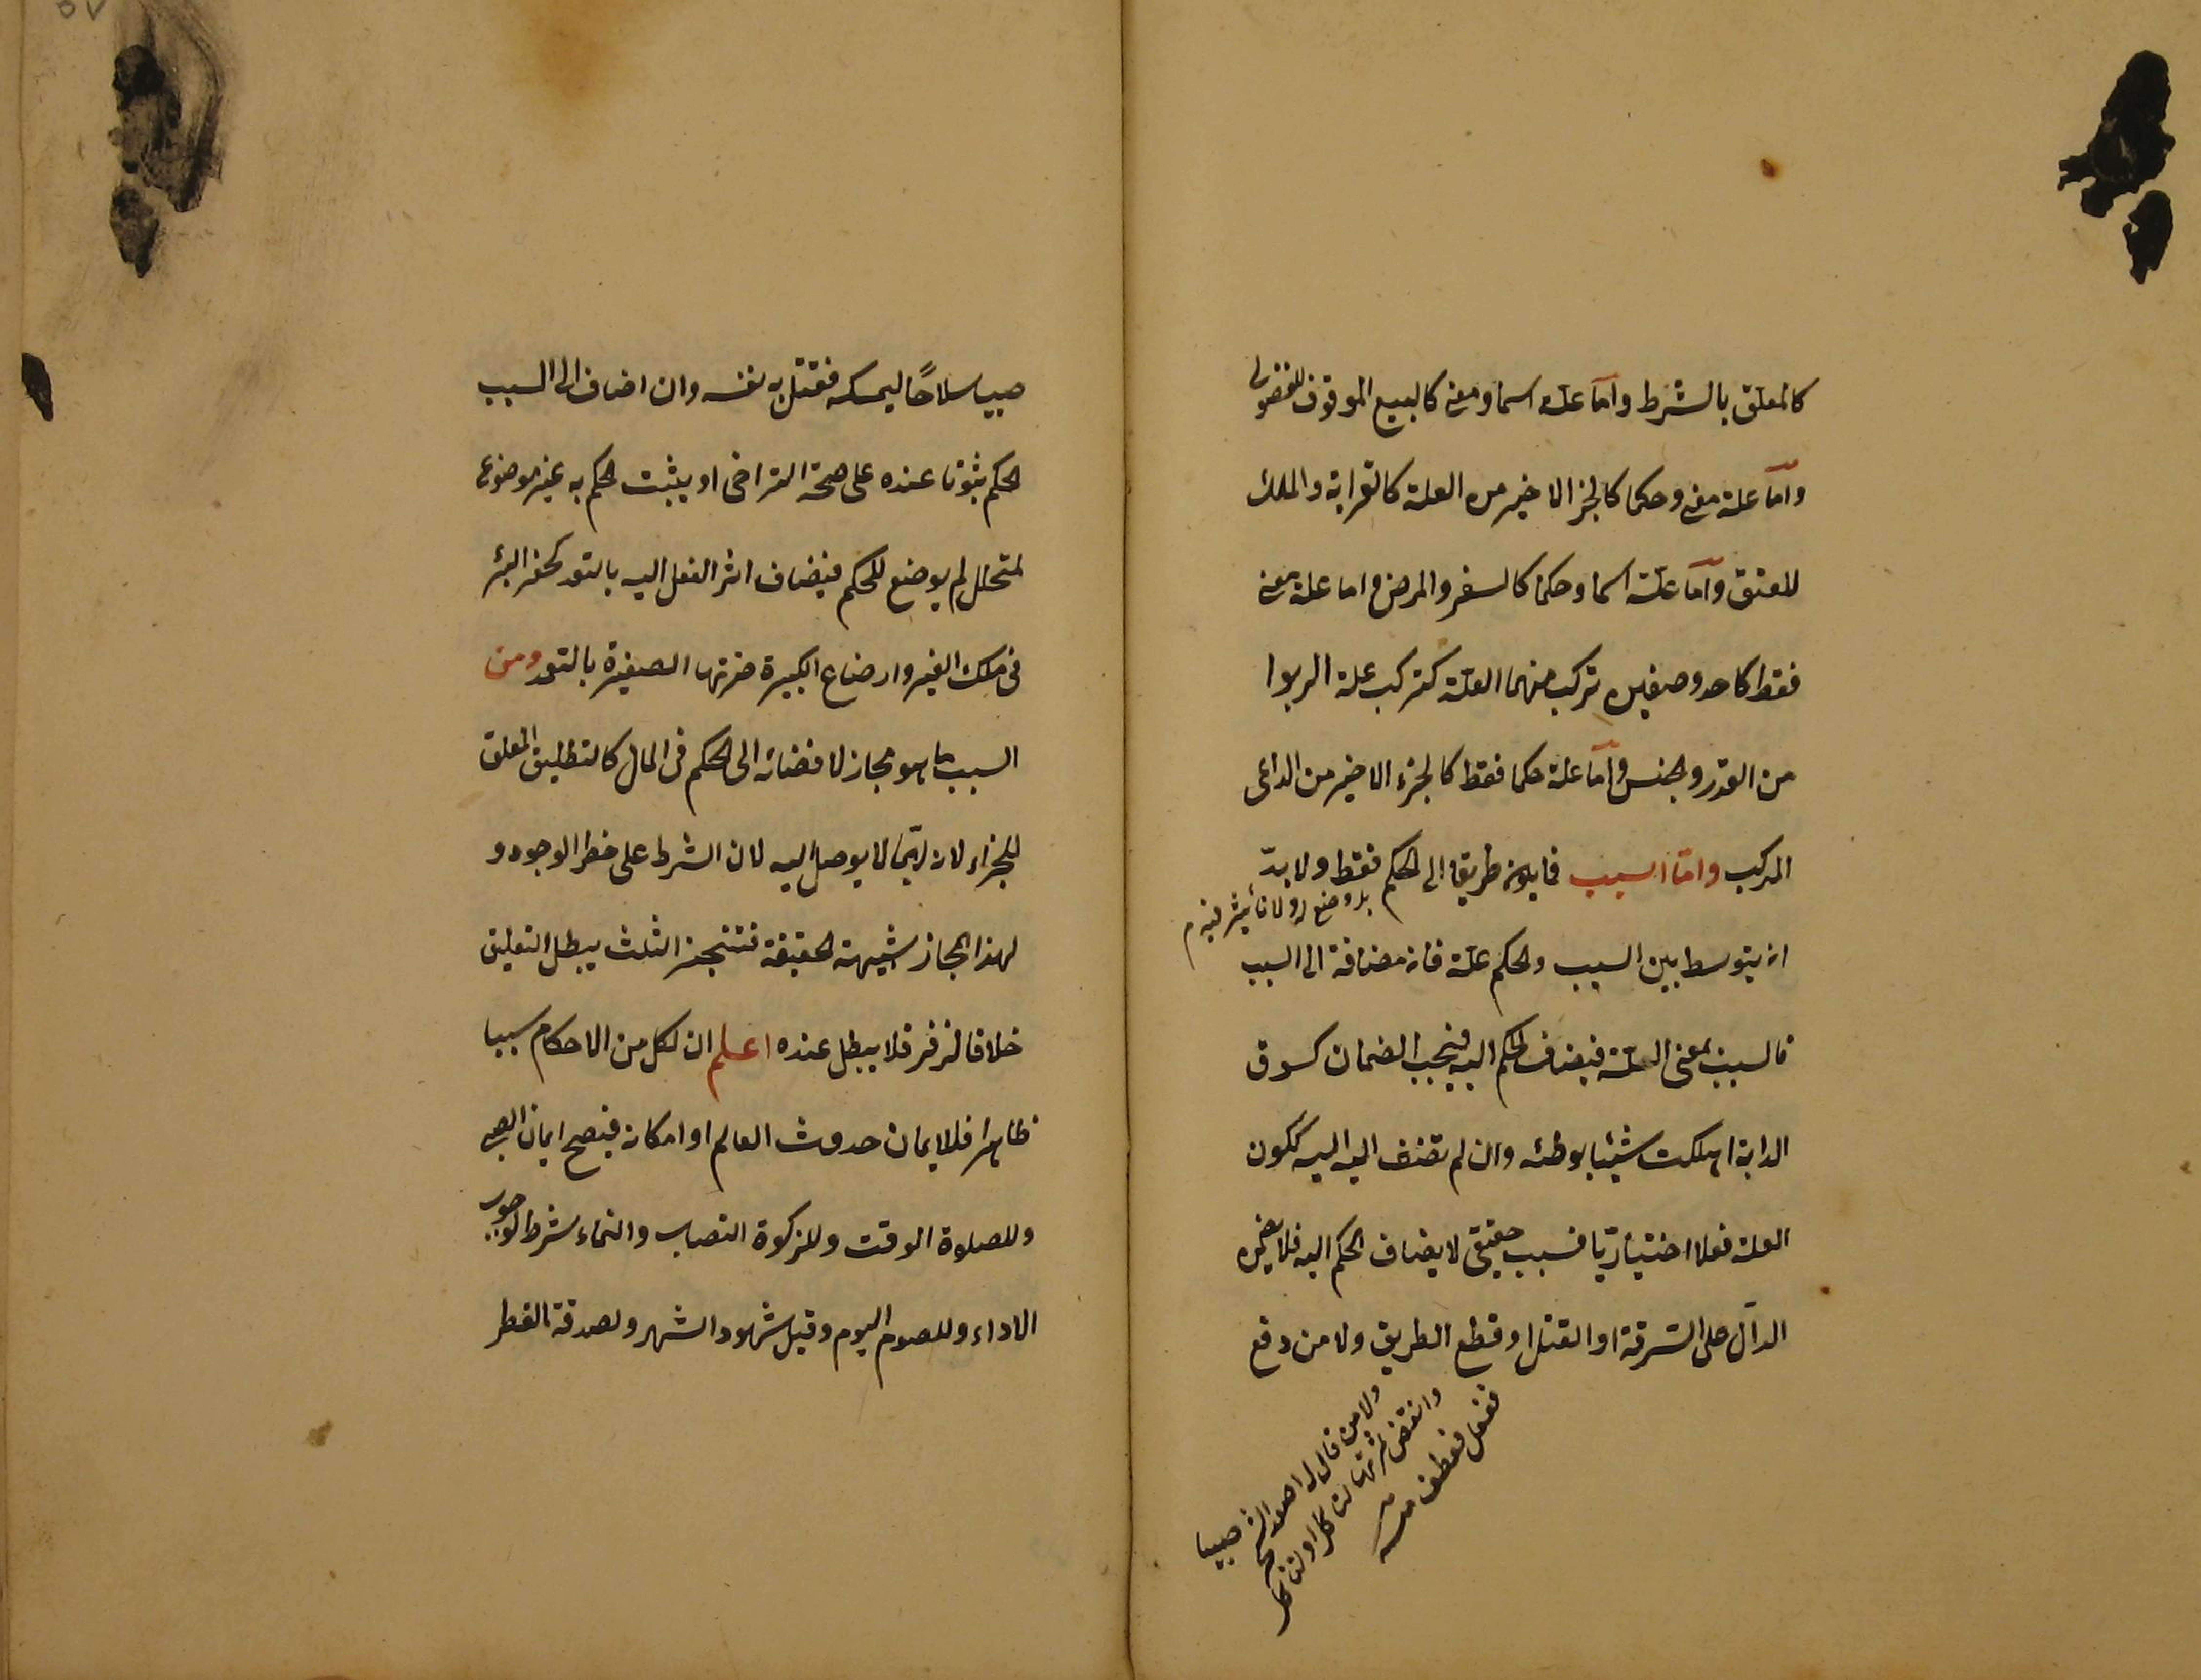 كالمعلق بالشرط واما علة اسما ومعنى كالبيع الموقوف للفضولى
واما علة معنى وحكما كالجزء الاخير من العلة كالقرابة والملك
للعتق واما علة اسما وحكما كالسفر والمرض واما علة معنى
فقط كاحد وصفين تركب منهما العلة كتركب علة الربوا
من القدر والجنس واما علة حكما فقط كالجزء الاخير من الداعى
المركب واما السبب فما يكون طريقا الى الحكم فقط ولا بدّ
بلا وضع له ولا تأثير فيه م
ان يتوسط بين السبب والحكم علة فان مضافة الى السبب
فالسبب بمعنى العلة فيضاف الحكم اليه فيجب الضمان كسوق
الدابة اهلكت شيئا بوطئه وان لم تضف اليه ككون
العلة فعلا اختياريا فسبب حقيقى لا يضاف الحكم اليه فلا يضمن
الدآل على السرقة او القتل او قطع الطريق ولا من دفع
ولا من قال له اصعد الشجرة صبيا
وانقض ثمرتها لتأكل او لنأكل
ففعل فعطب منه
صبيا سلاحًا ليمسكه فقتل به نفسه وان اضاف الى السبب
الحكم ثبوتا عنده على صحة التراخى او يثبت الحكم به غير موضوع
لمتخلل لم يوضع للحكم فيضاف اثر الفعل اليه بالتعد كحفر البئر
فى ملك الغير وارضاع الكبيرة ضرتها الصغيرة بالتعد ومن
السبب ما هو مجاز لافضائه الى الحكم فى المال كالتطليق المعلق
للجزاء لانه ربّما لا يوصل اليه لان الشرط على خطر الوجود و
لهذا المجاز شبهة الحقيقة فتنجيز الثلث يبطل التعليق
خلافا لزفر فلا يبطل عنده اعلم ان لكل من الاحكام سببا
ظاهرا فللايمان حدوث العالم او امكانه فيصح ايمان الصبى
وللصلوة الوقت وللزكوة النصاب والنماء شرط لوجوب
الاداء وللصوم اليوم وقيل شهود الشهر ولصدقة الفطر